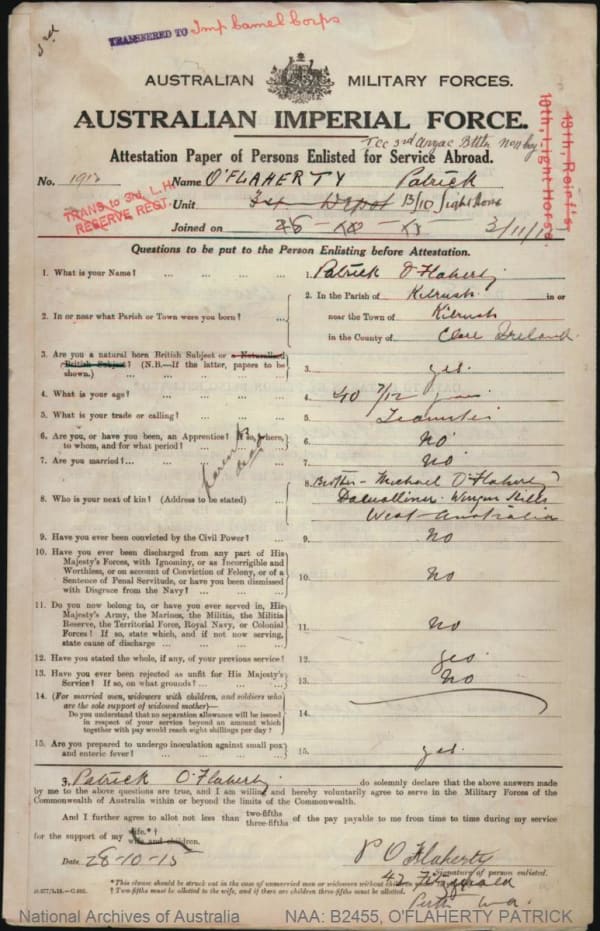 3rd
TRANSFERED TO Imp Camel Corps
AUSTRALIAN MILITARY FORCES.
AUSTRALIAN IMPERIAL FORCE.
3rd Anzac Bttn
Attestation Paper of Persons Enlisted for Service Abroad.
10th, Light Horse
No. Name O'FLAHERTY Patrick
TRANS to 3rd, L.H. RESERVE REGT.
Unit Depot B/10 Light Horse
Joined on 3/11/15
Questions to be put to the Person Enlisting before Attestation.
1. What is your Name? ... 1. Patrick O'Flaherty
2. In or near what Parish or Town were you born? ... 2. In the Parish of Kilrush in or
near the Town of Kilrush
in the County of Clare Ireland
3. Are you a natural born British Subject or a Naturalized
British Subject? (N.B.—If the latter, papers to be
shown.) ... 3. yes.
4. What is your age? ... 4. 40 7/12 years
5. What is your trade or calling? ... 5. Teamster
6. Are you, or have you been, an Apprentice? If so, where,
to whom, and for what period? ... 6. No
7. Are you married? ... 7. No
parents dead
8. Who is your next of kin? (Address to be stated) ... 8. Brother - Michael O'Flaherty
Hills
West Australia
9. Have you ever been convicted by the Civil Power? ... 9. No
10. Have you ever been discharged from any part of His
Majesty's Forces, with Ignominy, or as Incorrigible and
Worthless, or on account of Conviction of Felony, or of a
Sentence of Penal Servitude, or have you been dismissed
with Disgrace from the Navy? ... 10. No
11. Do you now belong to, or have you ever served in, His
Majesty's Army, the Marines, the Militia, the Militia
Reserve, the Territorial Force, Royal Navy, or Colonial
Forces? If so, state which, and if not now serving,
state cause of discharge ... 11. No
12. Have you stated the whole, if any, of your previous service? 12. yes
13. Have you ever been rejected as unfit for His Majesty's
Service? If so, on what grounds? ... 13. No
14. (For married men, widowers with children, and soldiers who
are the sole support of widowed mother)—
Do you understand that no separation allowance will be issued
in respect of your service beyond an amount which
together with pay would reach eight shillings per day? 14.
15. Are you prepared to undergo inoculation against small pox
and enteric fever? ... 15. yes.
I, Patrick O'Flaherty do solemnly declare that the above answers made
by me to the above questions are true, and I am willing and hereby voluntarily agree to serve in the Military Forces of the
Commonwealth of Australia within or beyond the limits of the Commonwealth.
And I further agree to allot not less than two-fifths three-fifths of the pay payable to me from time to time during my service
for the support of my wife.*† wife and children.
Date 28-10-15 P O'Flaherty
Signature of person enlisted.
*This clause should be struck out in the case of unmarried men or widowers without children
† Two-fifths must be allotted to the wife, and if there are children three-fifths must be allotted.
Perth W.A.
National Archives of Australia NAA: B2455, O'FLAHERTY PATRICK